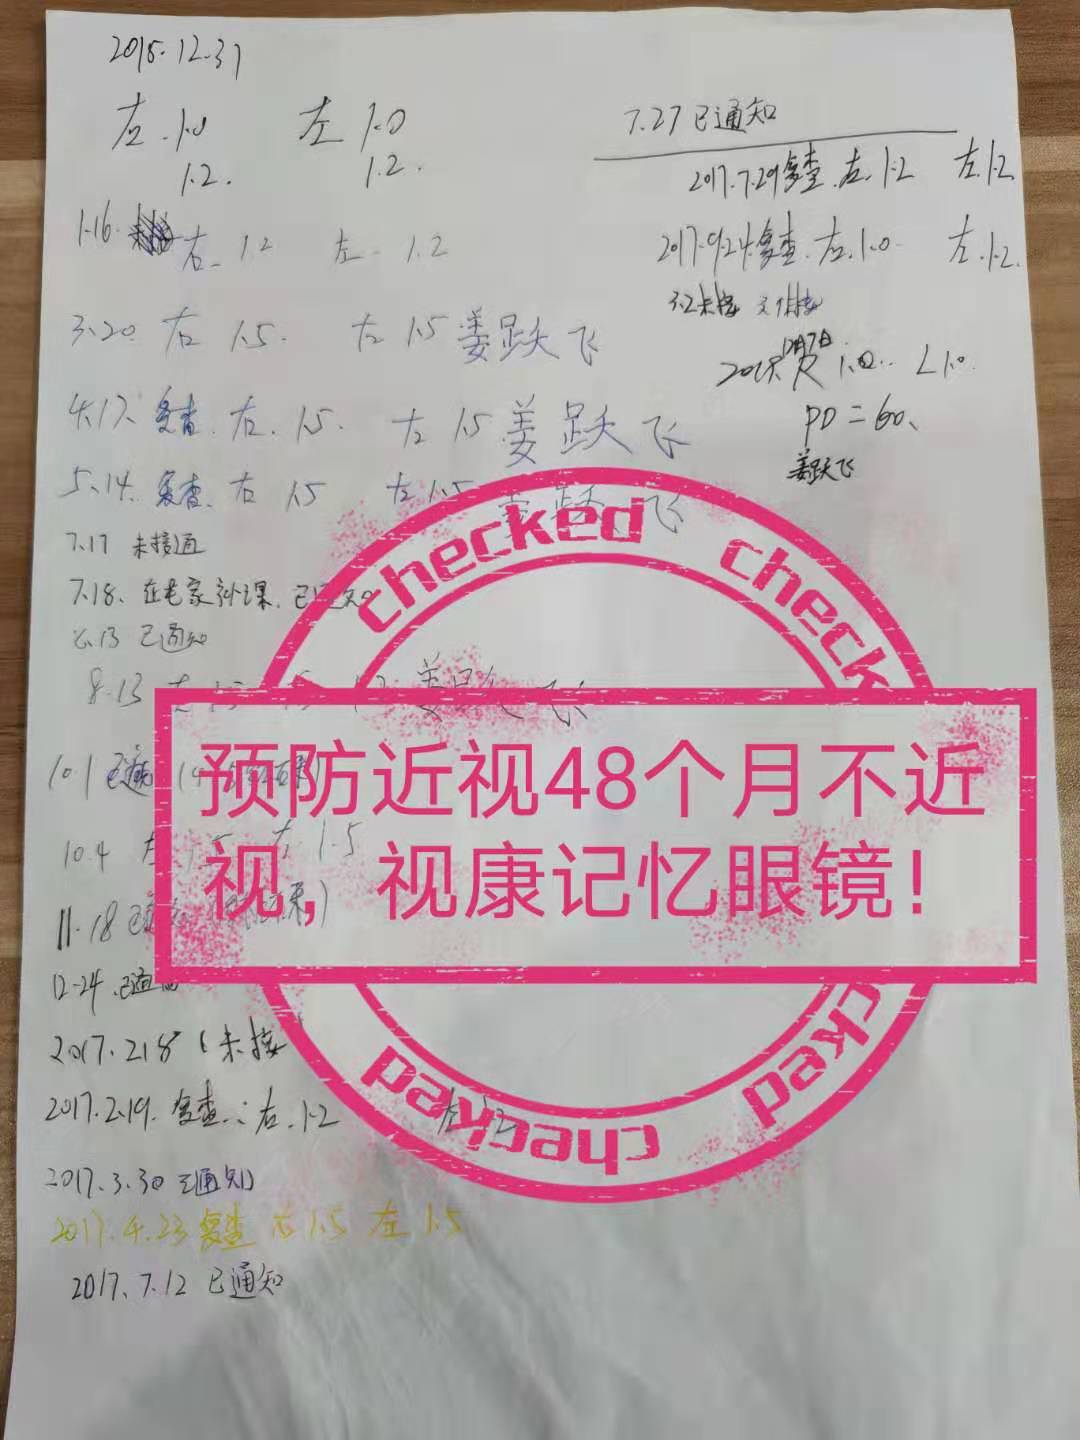 2015.12.31
右.1.0 左1.0
1.2. 1.2.
1.16. 右. 1.2 左. 1.2
3.20. 右 1.5. 左 1.5 姜跃飞
4.17. 复查. 右. 1.5. 左 1.5 姜跃飞
5.14. 复查. 右 1.5 左 1.5 飞
7.17 未接通
7.18. 在老家补课. 已通知
已通知
8.13 飞
10.1
10.4 1.5 左 1.5
11.18
12-24.
2017.2.18 (未接
2017.2.19. 复查.: 右.1.2
2017.3.30 已通知
2017.4.23 复查 右 1.5 左 1.5
2017.7.12 已通知
7.27 已通知
2017.7.29复查. 右.1.2 左.1.2
2017.9.24.复查. 右.1.0. 左.1.2.
3.2未接
12月7日
R 1.0.. L 1.0.
PD=60、
姜跃飞
checked checked
预防近视48个月不近
视，视康记忆眼镜！
checked checked checked